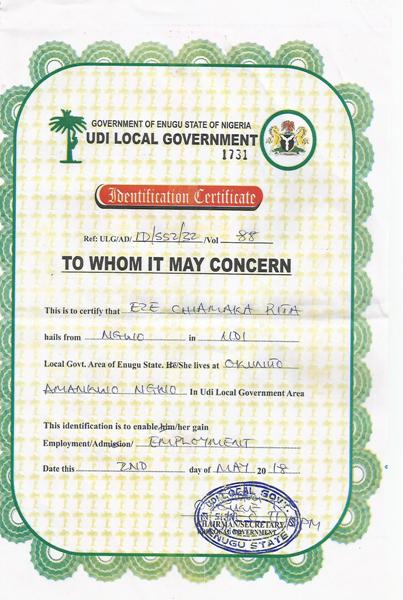 GOVERNMENT OF ENUGU STATE OF NIGERIA
UDI LOCAL GOVERNMENT
1731
Identification Certificate
Ref: ULG/AD/ ID/552/32 /Vol 88
TO WHOM IT MAY CONCERN
This is to certify that EZE CHIAMAKA RITA
hails from NGWO in UDI
Local Govt. Area of Enugu State. He/She lives at OKUNITO
AMANKWO NGWO In Udi Local Government Area
This identification is to enable him/her gain
Employment/Admission/ EMPLOYMENT
Date this 2ND day of MAY 2018
UDI LOCAL GOVT
CHAIRMAN/SECRETARY
LOCAL GOVERNMENT
ENUGU STATE